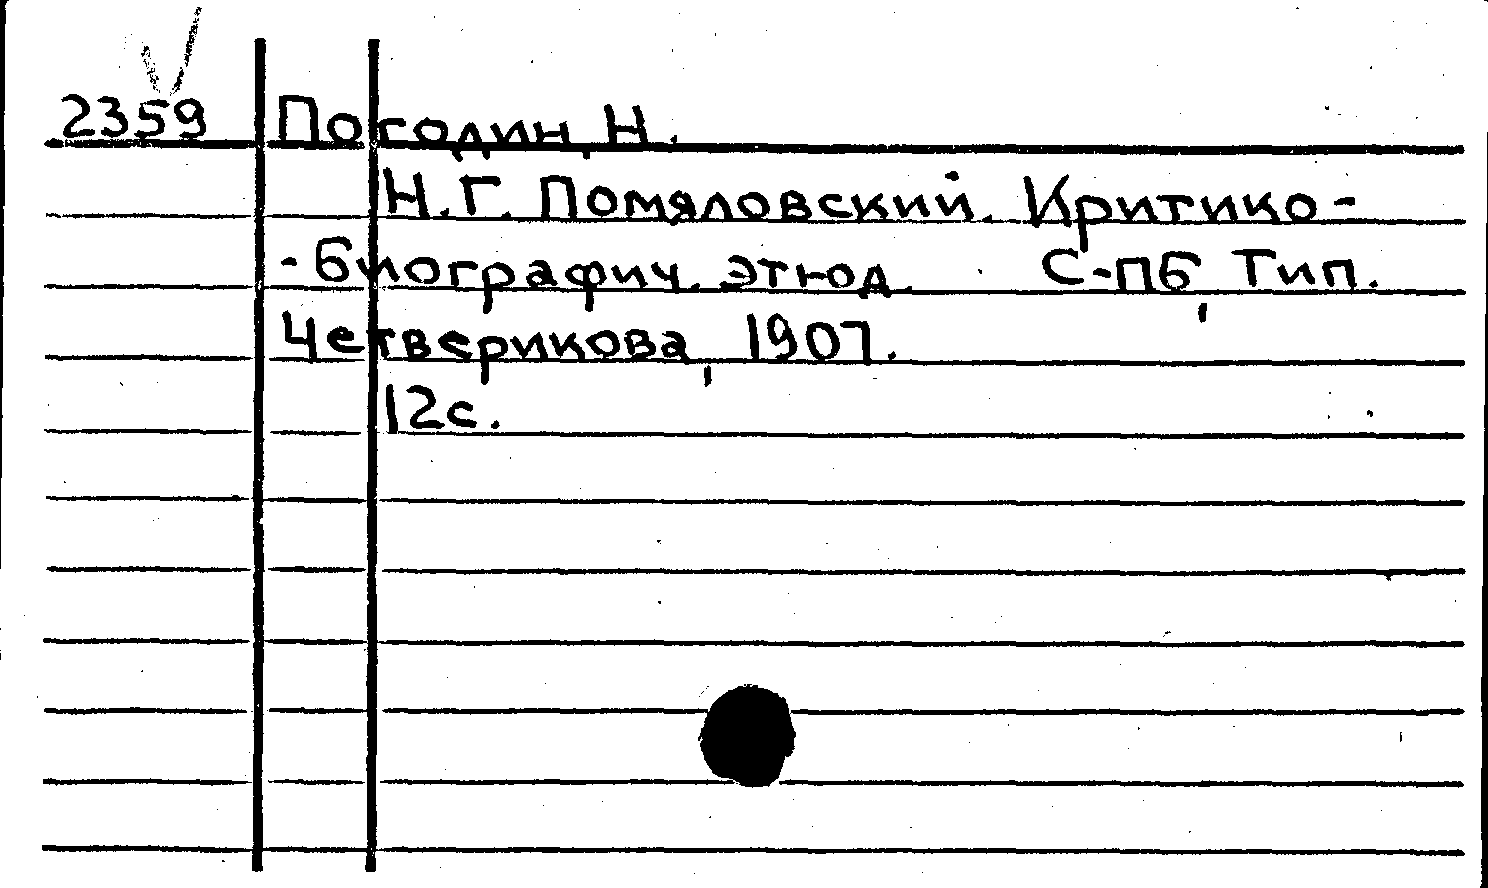 2359 Погодин, Н.
Н.Г. Помяловский. Критико-
-биографич. этюд. С-пб, Тип.
Четверикова, 1907.
12с.